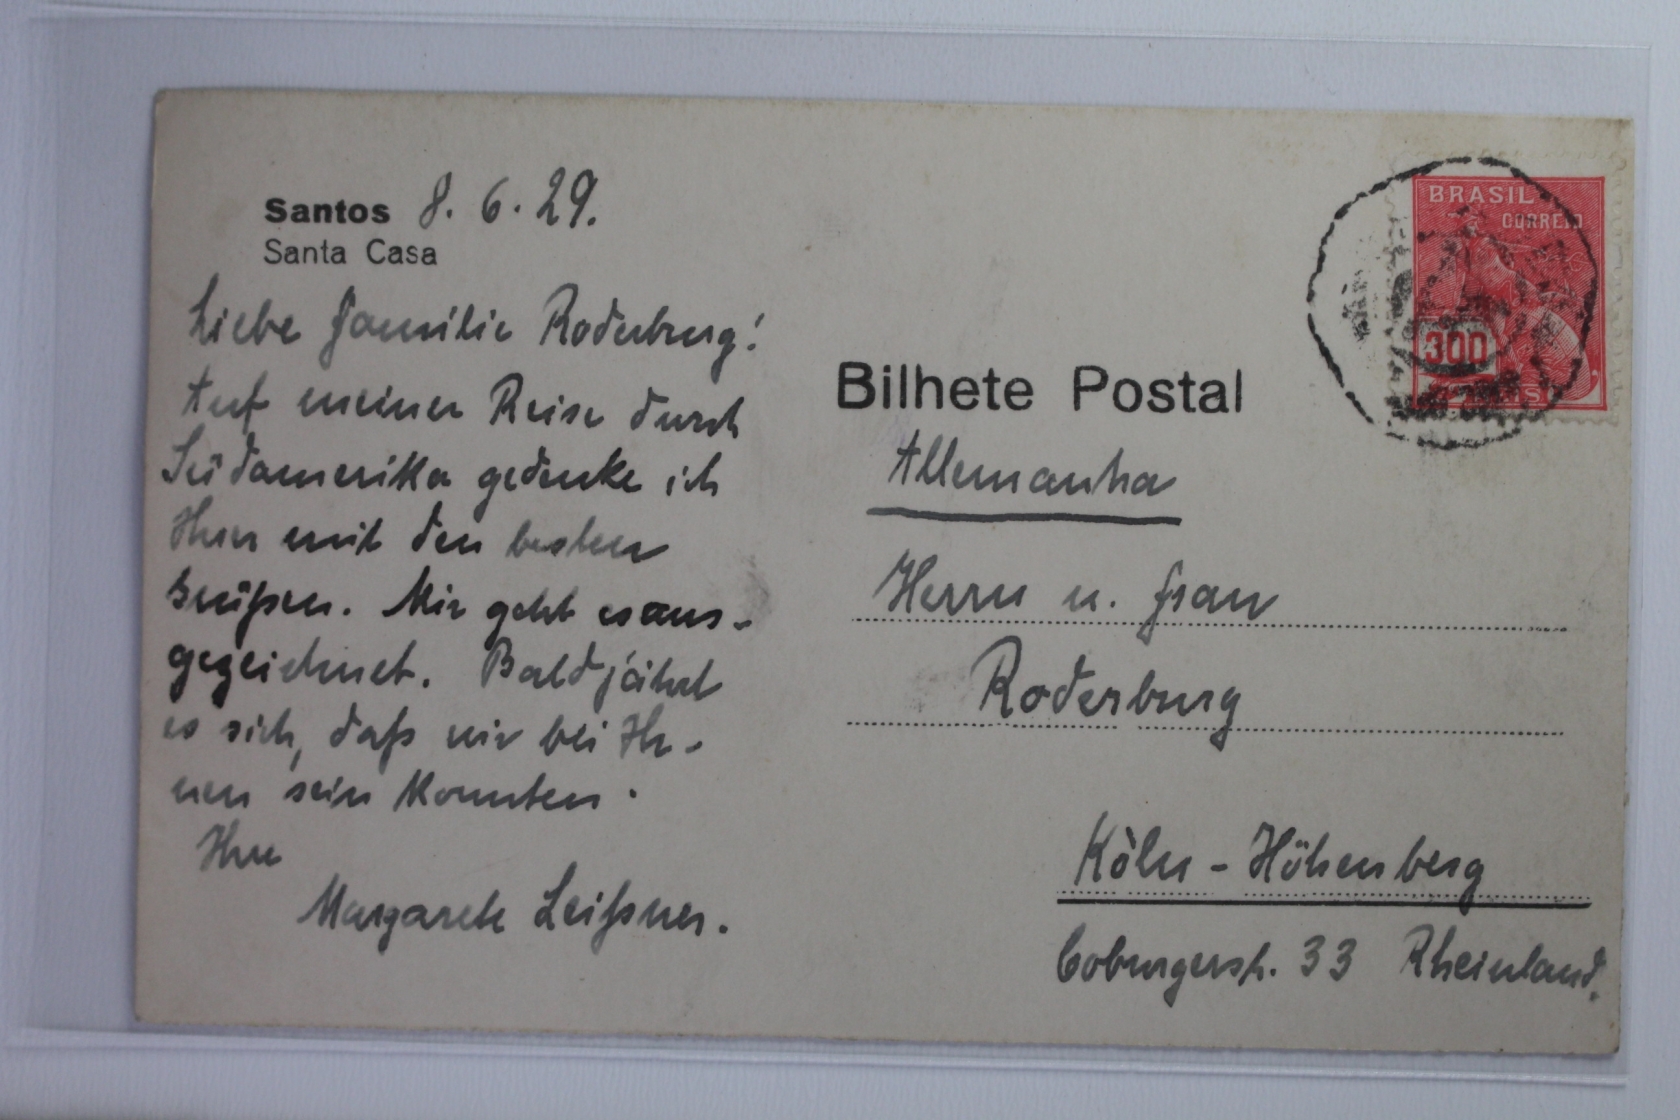 Santos 8. 6. 29.
Santa Casa
Liebe Familie Roderburg!
Auf meiner Reise durch
Südamerika gedenke ich
Ihrer mit den besten
Grüßen. Mir geht es aus-
gezeichnet. Bald jährt
es sich, daß wir bei Ih-
nen sein konnten.
Ihre
Margarete Leißner.
BRASIL
CORREIO
300
Bilhete Postal
Allemanha
Herrn u. Frau
Roderburg
Köln - Höhenberg
Coburgerstr. 33 Rheinland.